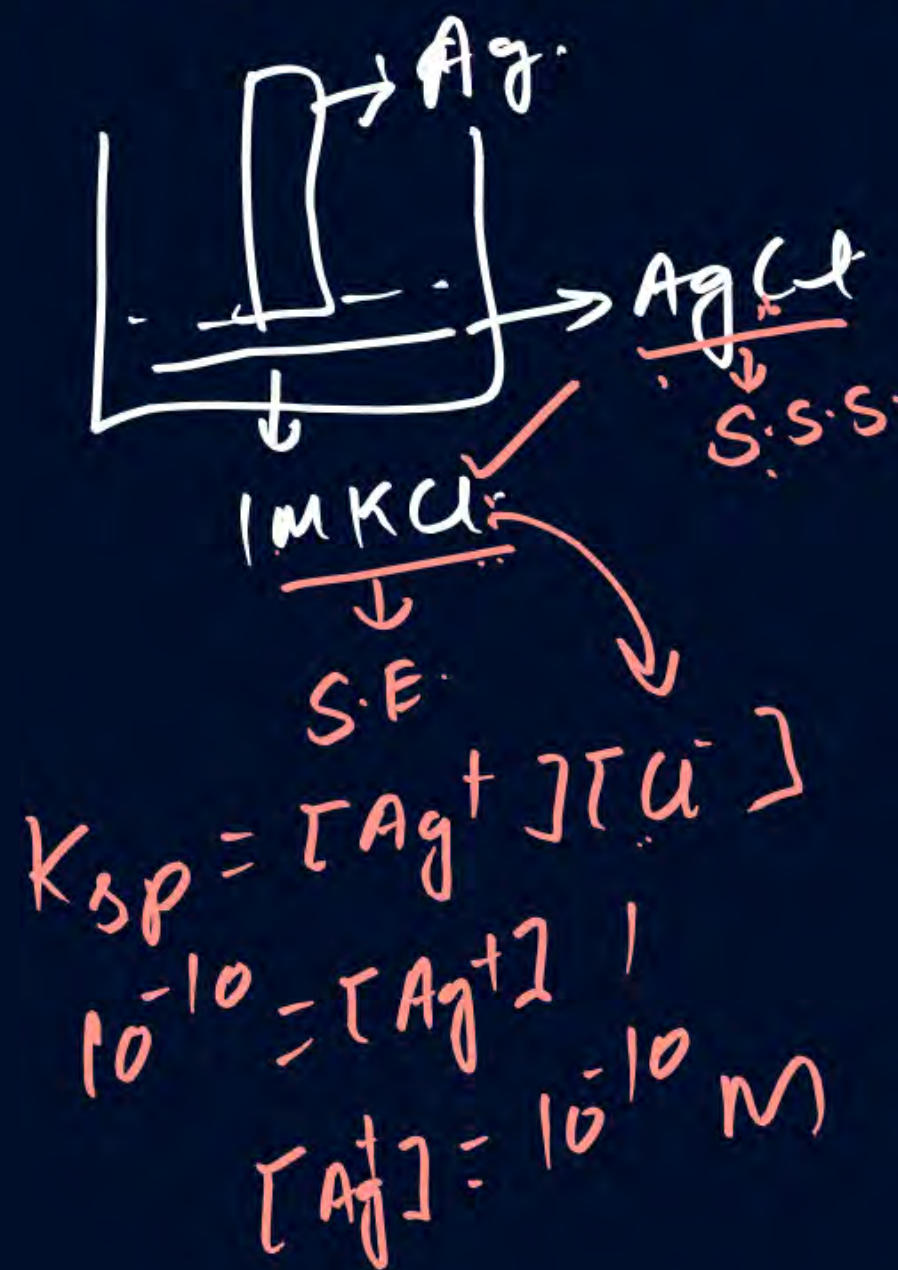 Ag.
AgCl
S.S.S.
1M KCl
S.E.
Ksp = [Ag+][Cl-]
10-10 = [Ag+] 1
[Ag+] = 10-10 M